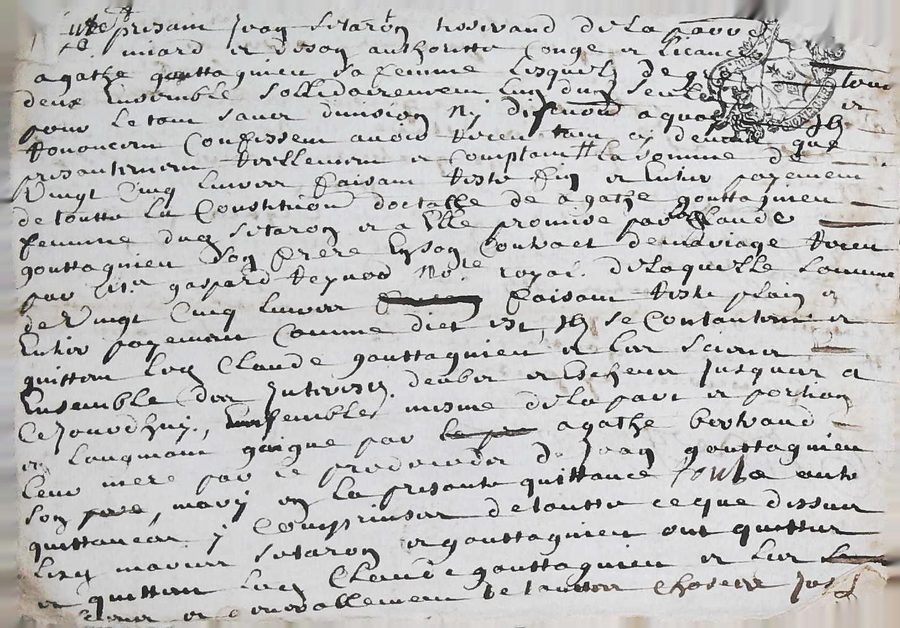 presant Jean Sitaron tisserand de la
miard et de son authoritte conge et licance
agathe gouttagnieu sa femme lesquels de gre
deux Ensemble sollidairement lun dux seul tout
pour le tout sans division Ny discution a quoy et
Renoncent Confessent avoir Receu tant cy devant que
presantement Reellement et comptant la somme de
Vingt Cinq Livres faisant Reste fin et Entier payement
de toutte la Constitution doctalle de agathe gouttagnieu
femme dud Sitaron et a Elle promise par Claude
gouttagnieu son frere En son Contract de mariage Receu
par gaspard Reynod No.re royal de laquelle somme
de Vingt Cinq Livres faisant Reste plain et
Entier payement comme dict est, Ils se Contantent et
quittent led Claude gouttagnieu et les siens
Ensemble des Interests deubz et Escheus Jusques a
Cejourdhuy, Ensembles mesme de la part et portion
et laugmant gaigne par agathe bertrand
leur mere par le predeceder de Jean gouttagnieu
son mary en la presante quittance toutte autre
quittances y comprinses de toutte ce que dessus
lesd maries Sitaron et gouttagnieu ont quitter
et quittent led Claude gouttagnieu et les
et generallement de touttes choses Jus